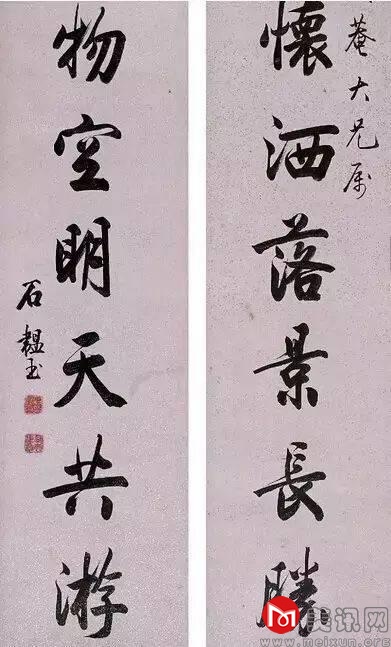 菴大兄属
懷洒落景長勝
物空明天共游
石韞玉
美讯网
www.meixun.org